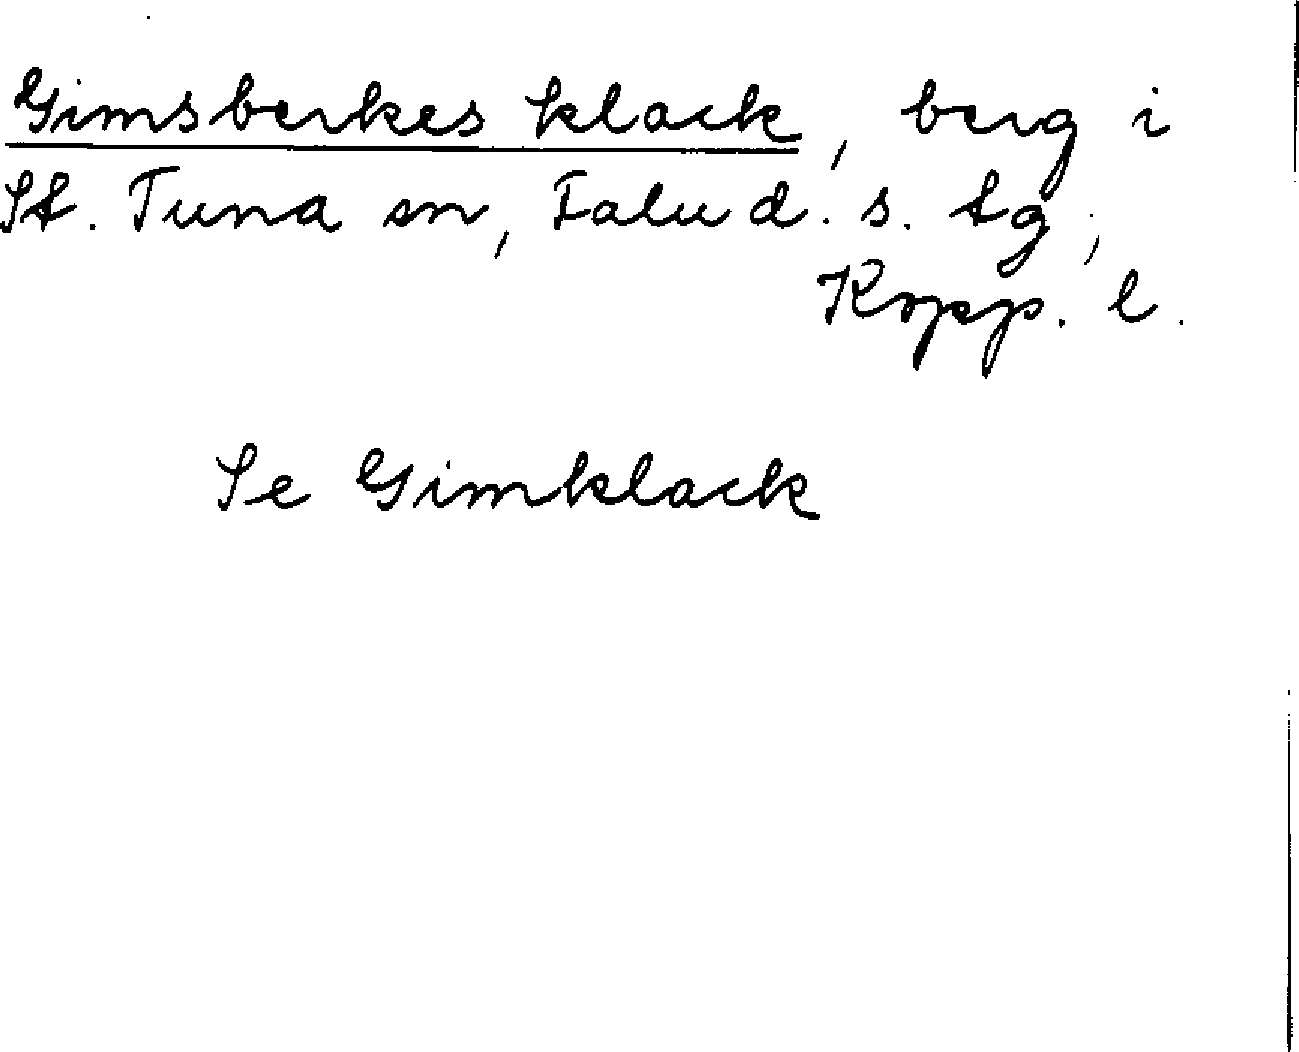 Gimsberkes klack, berg i
St. Tuna sn, Falu d. s. tg,
Kopp. l.
Se Gimklack